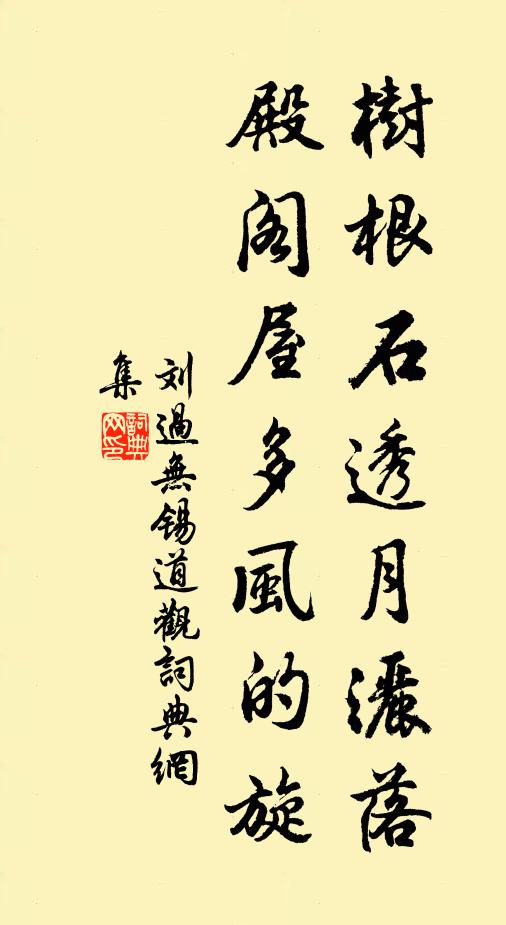 樹根石透月灑落
殿阁屋多風的旋
刘過無錫道觀詞典網
集
詞典
网印